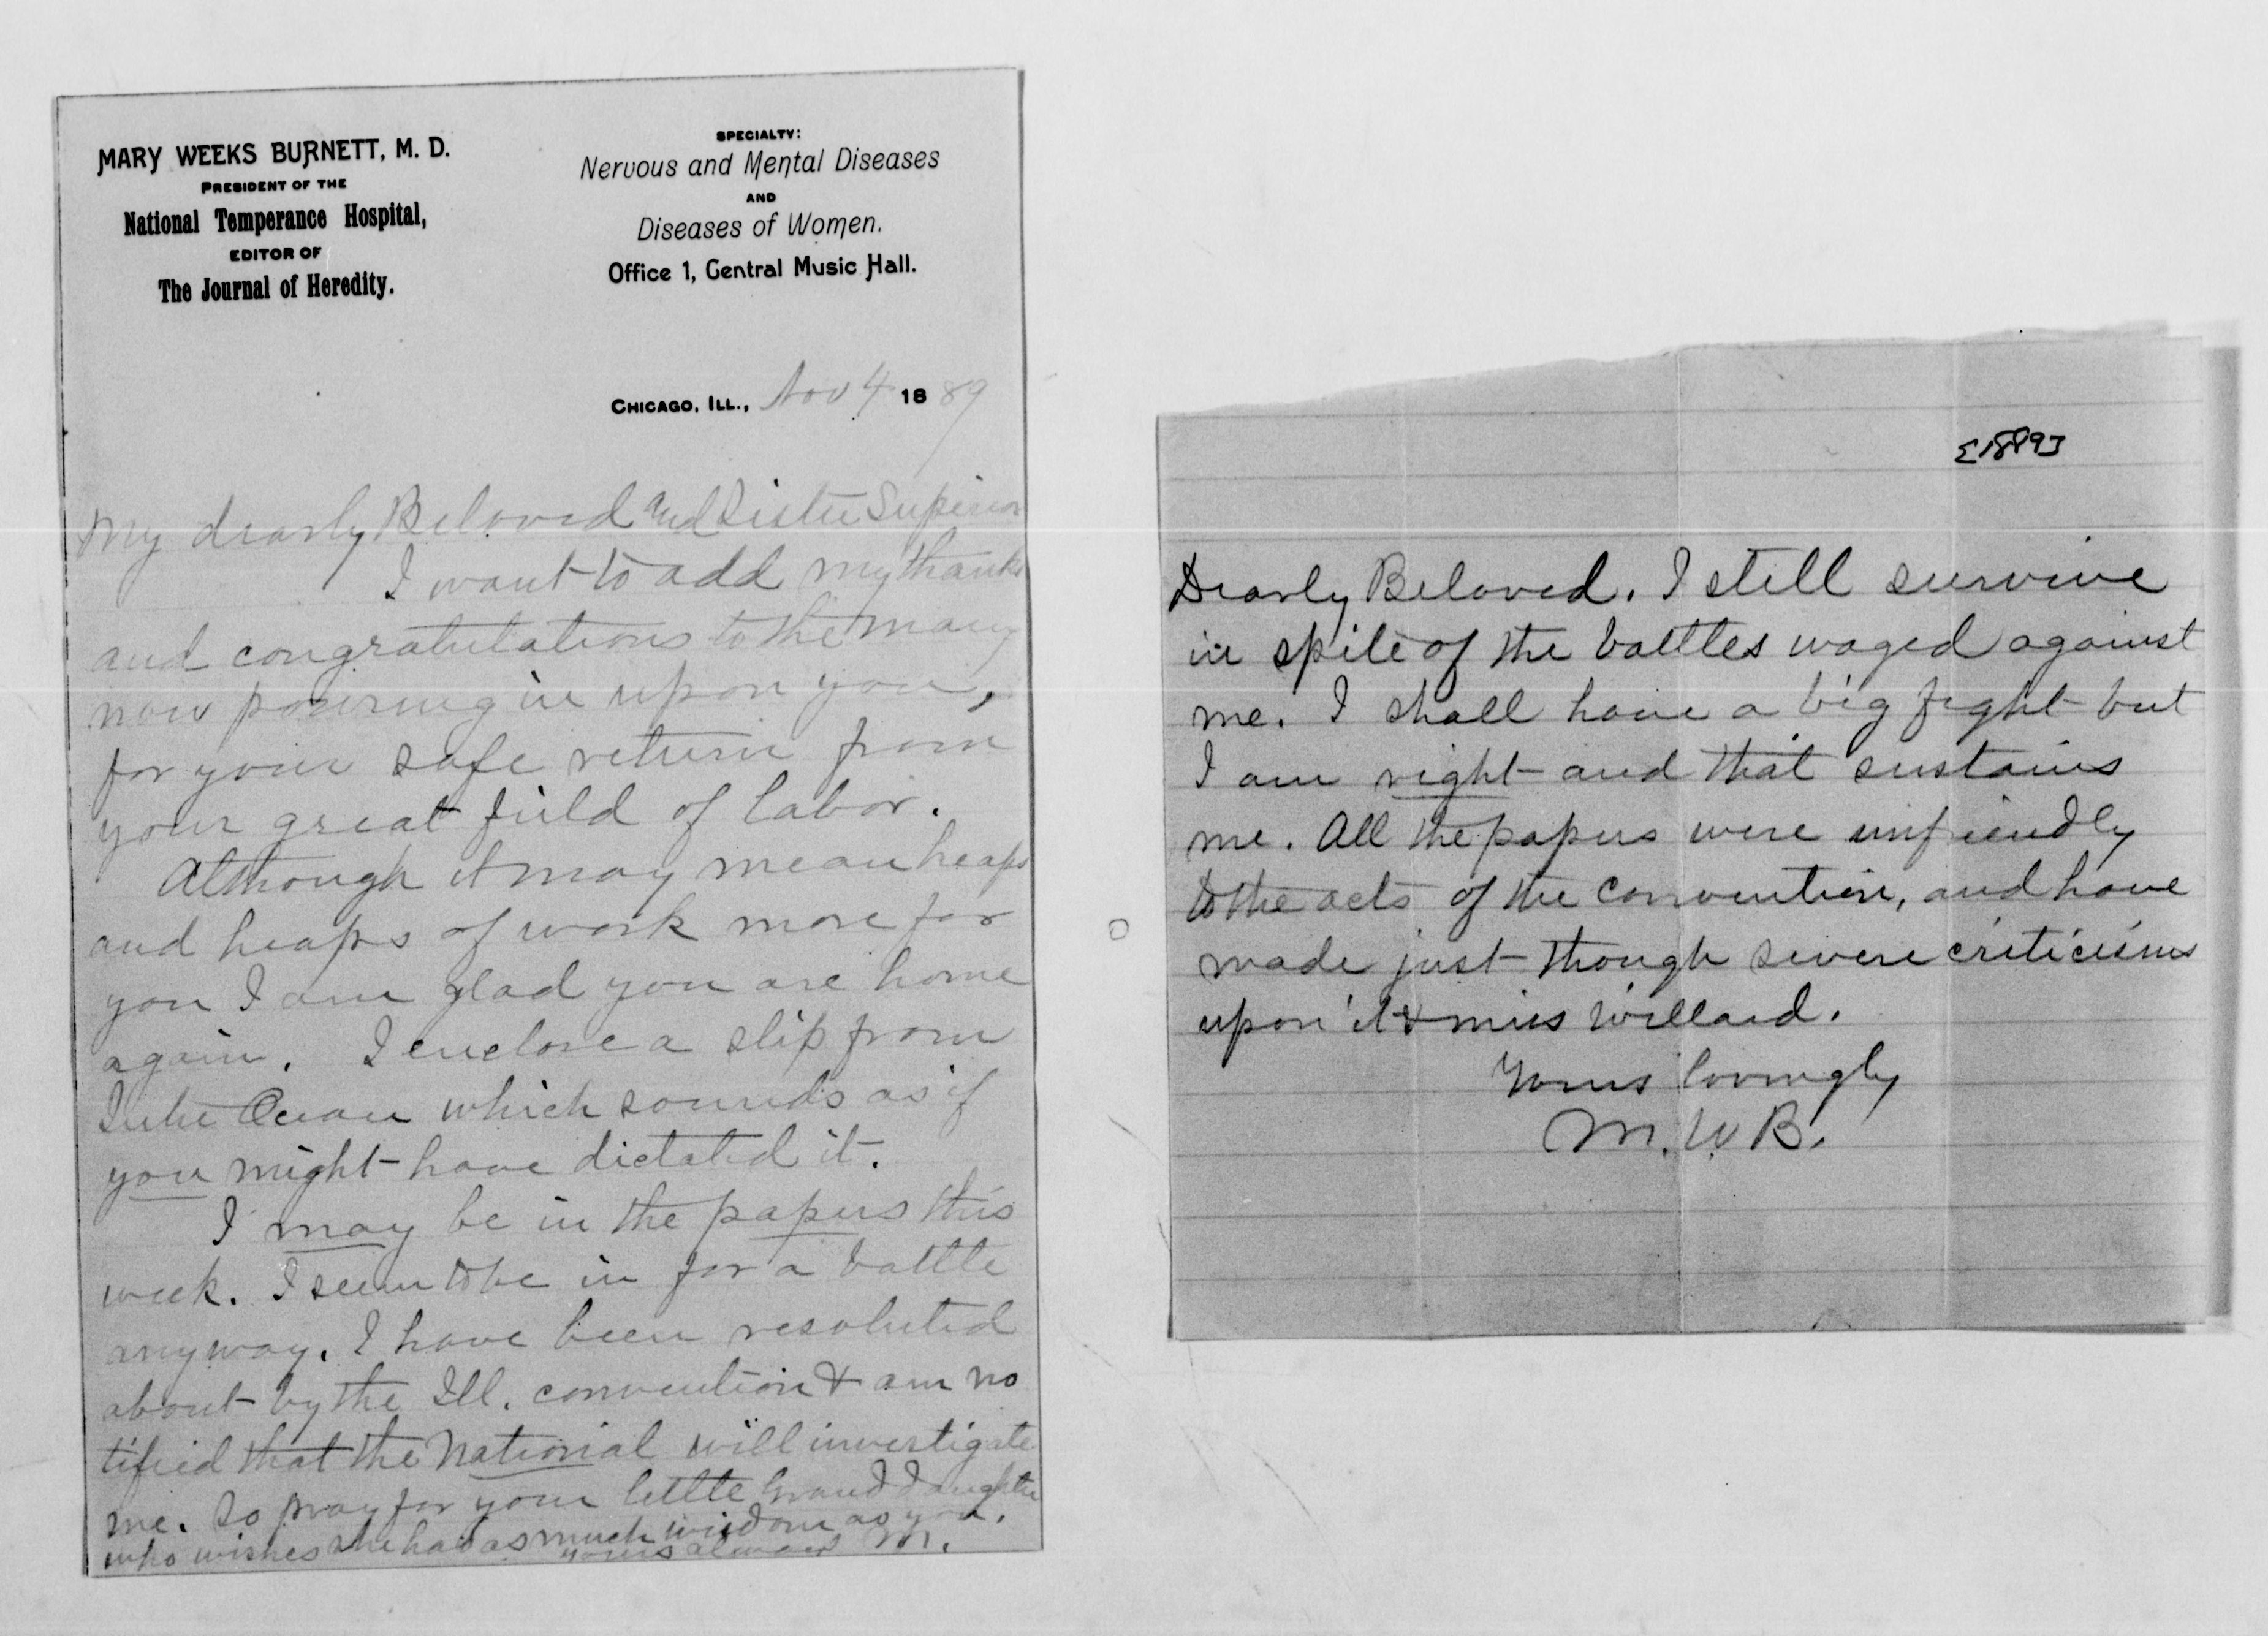 MARY WEEKS BURNETT, M. D.
PRESIDENT OF THE
National Temperance Hospital,
EDITOR OF
The Journal of Heredity.
SPECIALTY:
Nervous and Mental Diseases
AND
Diseases of Women.
Office 1, Central Music Hall.
CHICAGO, ILL., Nov 4 1889
My dearly Beloved and Sister Superior
I want to add my thanks
and congratulations to the many
now pouring in upon you,
for your safe return from
your great field of labor.
Although it may mean heaps
and heaps of work more for
you I am glad you are home
again. I enclose a slip from
Inter Ocean which sounds as if
you might have dictated it.
I may be in the papers this
week. I seem to be in for a battle
anyway. I have been resoluted
about by the Ill. convention & am no
tified that the National will investigate
me. So pray for your little Grand daughter
who wishes she had as much wisdom as you.
yours always M.
[1889]
Dearly Beloved. I still survive
in spite of the battles waged against
me. I shall have a big fight but
I am right and that sustains
me. All the papers were unfriendly
to the acts of the convention, and have
made just though severe criticisms
upon it & miss Willard.
Yours lovingly
M. W. B.